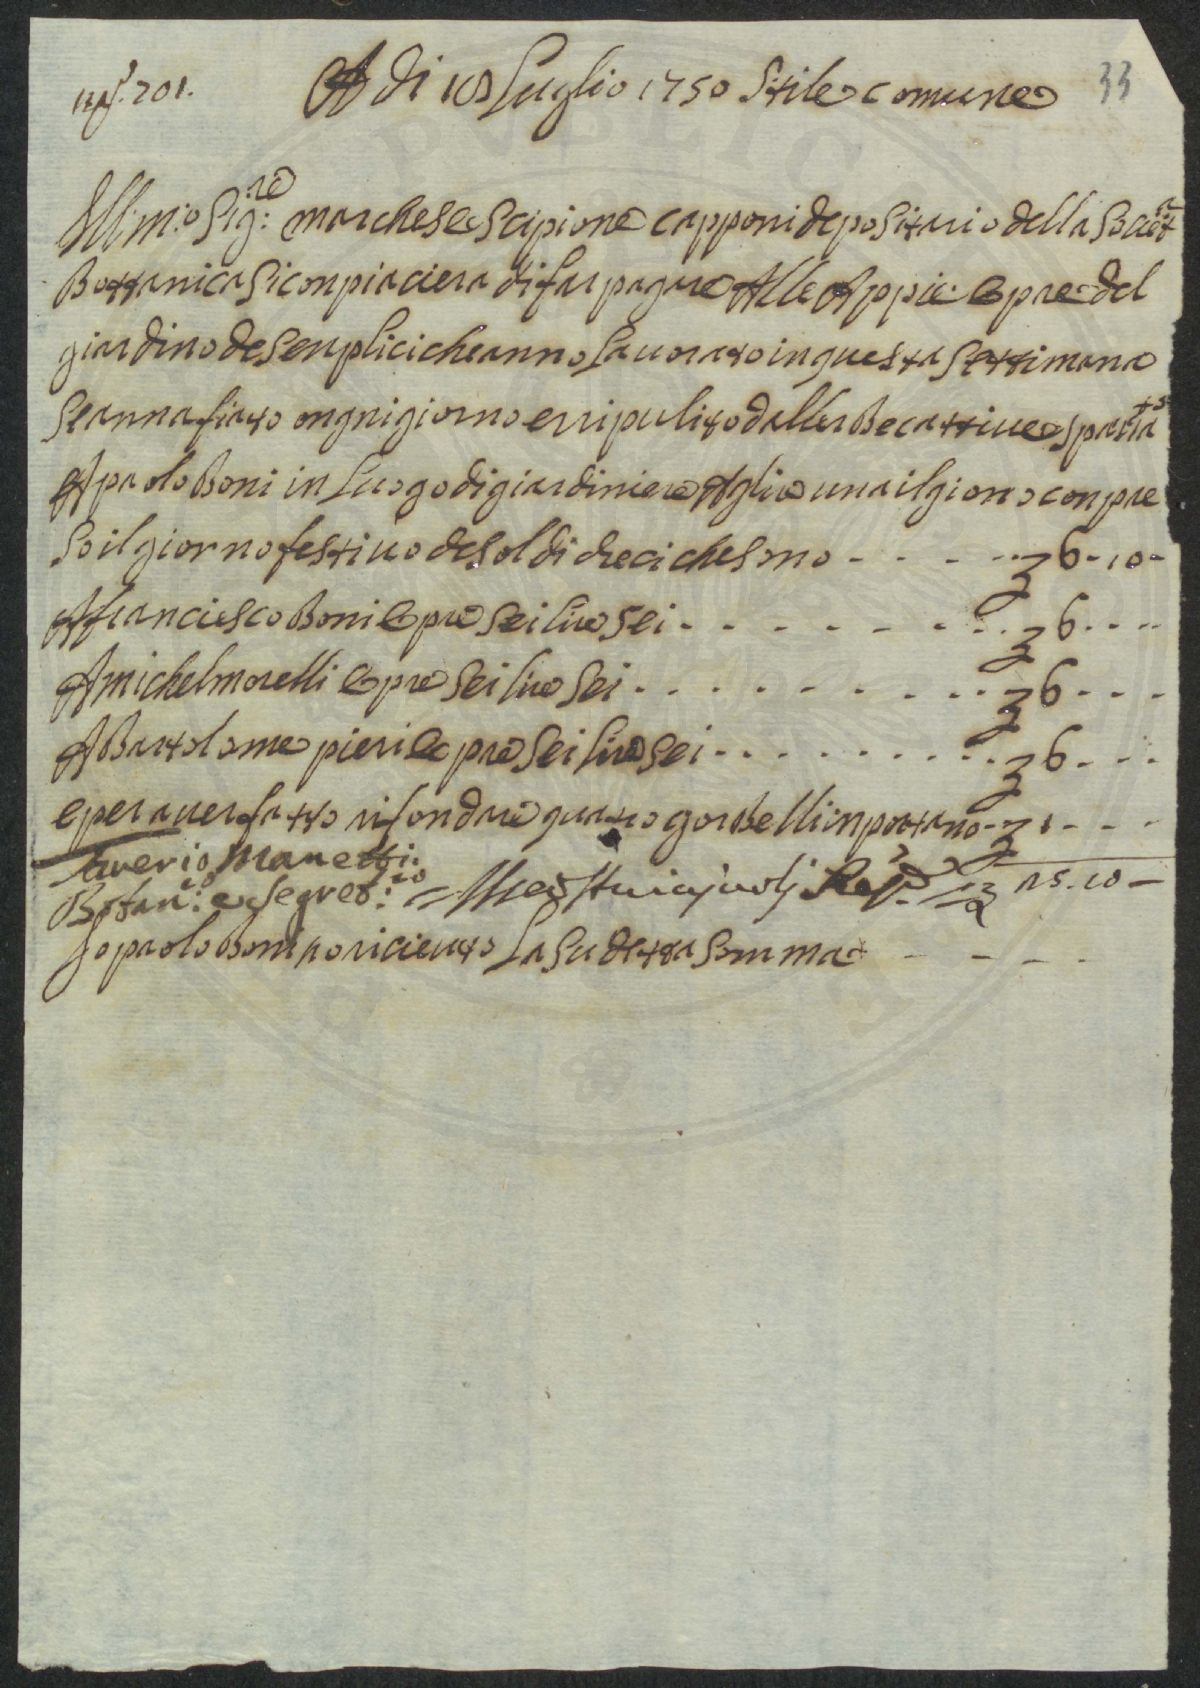 201. A di 18 Luglio 1750 Stile comune 33
Ill:m:o Sig:re marchese Scipione capponi depositario della Societa
Bottanica Si conpiaciera di far pagare Alle Appie: Opre del
giardino de Senplici che anno Lauorato in questa Settimana
Se annafiato ongni giorno e rripulito dalle
A paolo Boni in Luogo di giardiniere A lire una il giorno conpre
So il giorno festiuo de soldi dieci che sono - - - - 6 - 10 -
A franciesco Boni Opre Sei lire Sei - - - - - - - - 6 - - -
A michel morelli Opre Sei lire Sei - - - - - - - - 6 - - -
A Bartolomeo pieri Opre Sei lire Sei - - - - - - - - 6 - - -
e per auer fatto rifondare quatro gorbelli inportano - 1 - - -
Saverio Manetti
Botan:co e Segret:rio 25 . 10 -
Jo paolo Boni o riceuto La Su detta Somma - - - -